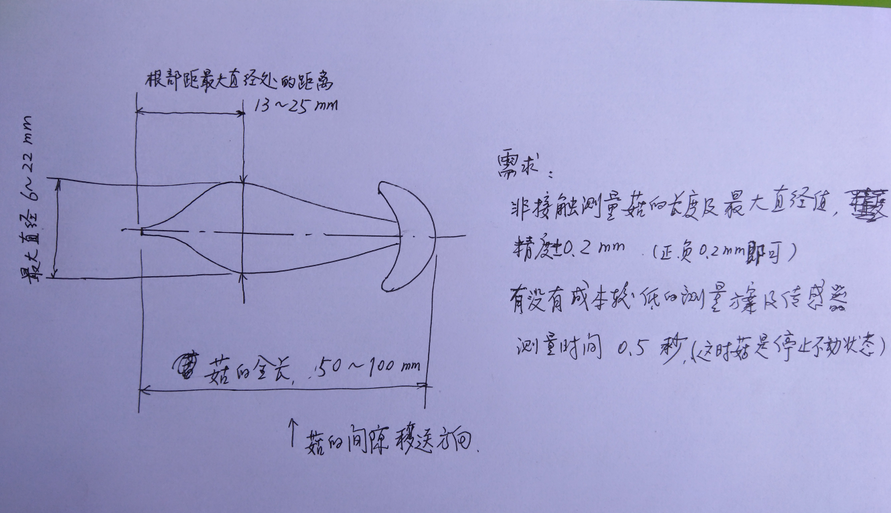 根部距最大直径处的距离
13~25 mm
最大直径 6~22 mm
菇的全长, 50~100 mm
↑ 菇的间隙移送方向.
需求:
非接触测量菇的长度及最大直径值,
精度±0.2 mm (正负0.2mm即可)
有没有成本较低的测量方案及传感器
测量时间 0.5 秒,(这时菇是停止不动状态)